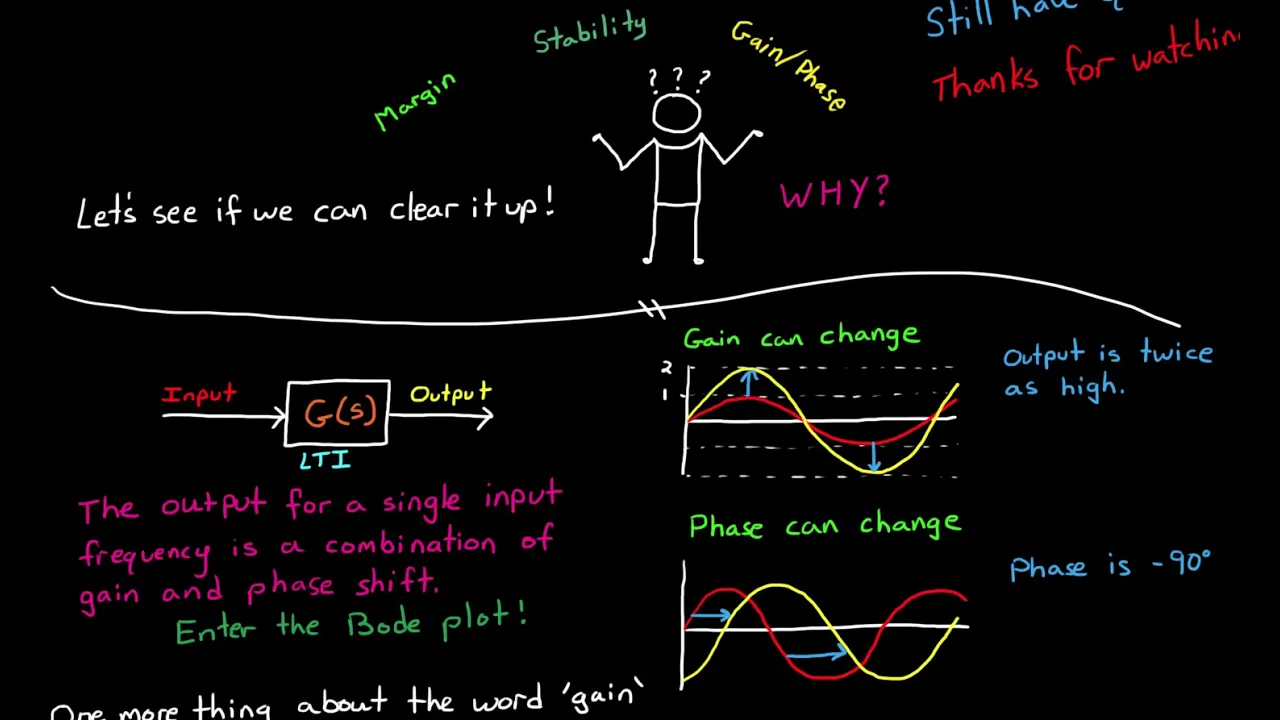 Still
Thanks for watching
Stability
Gain/Phase
? ? ?
Margin
WHY?
Let's see if we can clear it up!
Gain can change
2
1
Output is twice
as high.
Input
G(s)
Output
LTI
The output for a single input
frequency is a combination of
gain and phase shift.
Enter the Bode plot!
Phase can change
Phase is -90°
One more thing about the word 'gain'